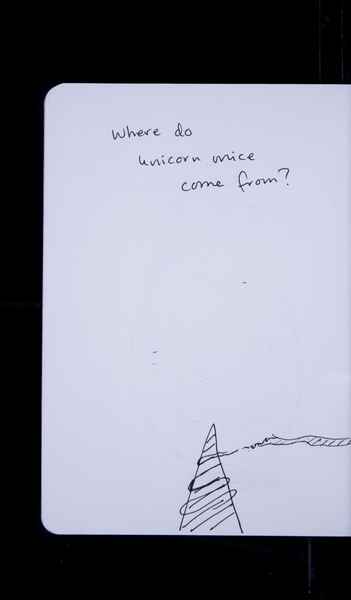 Where do
unicorn mice
come from?